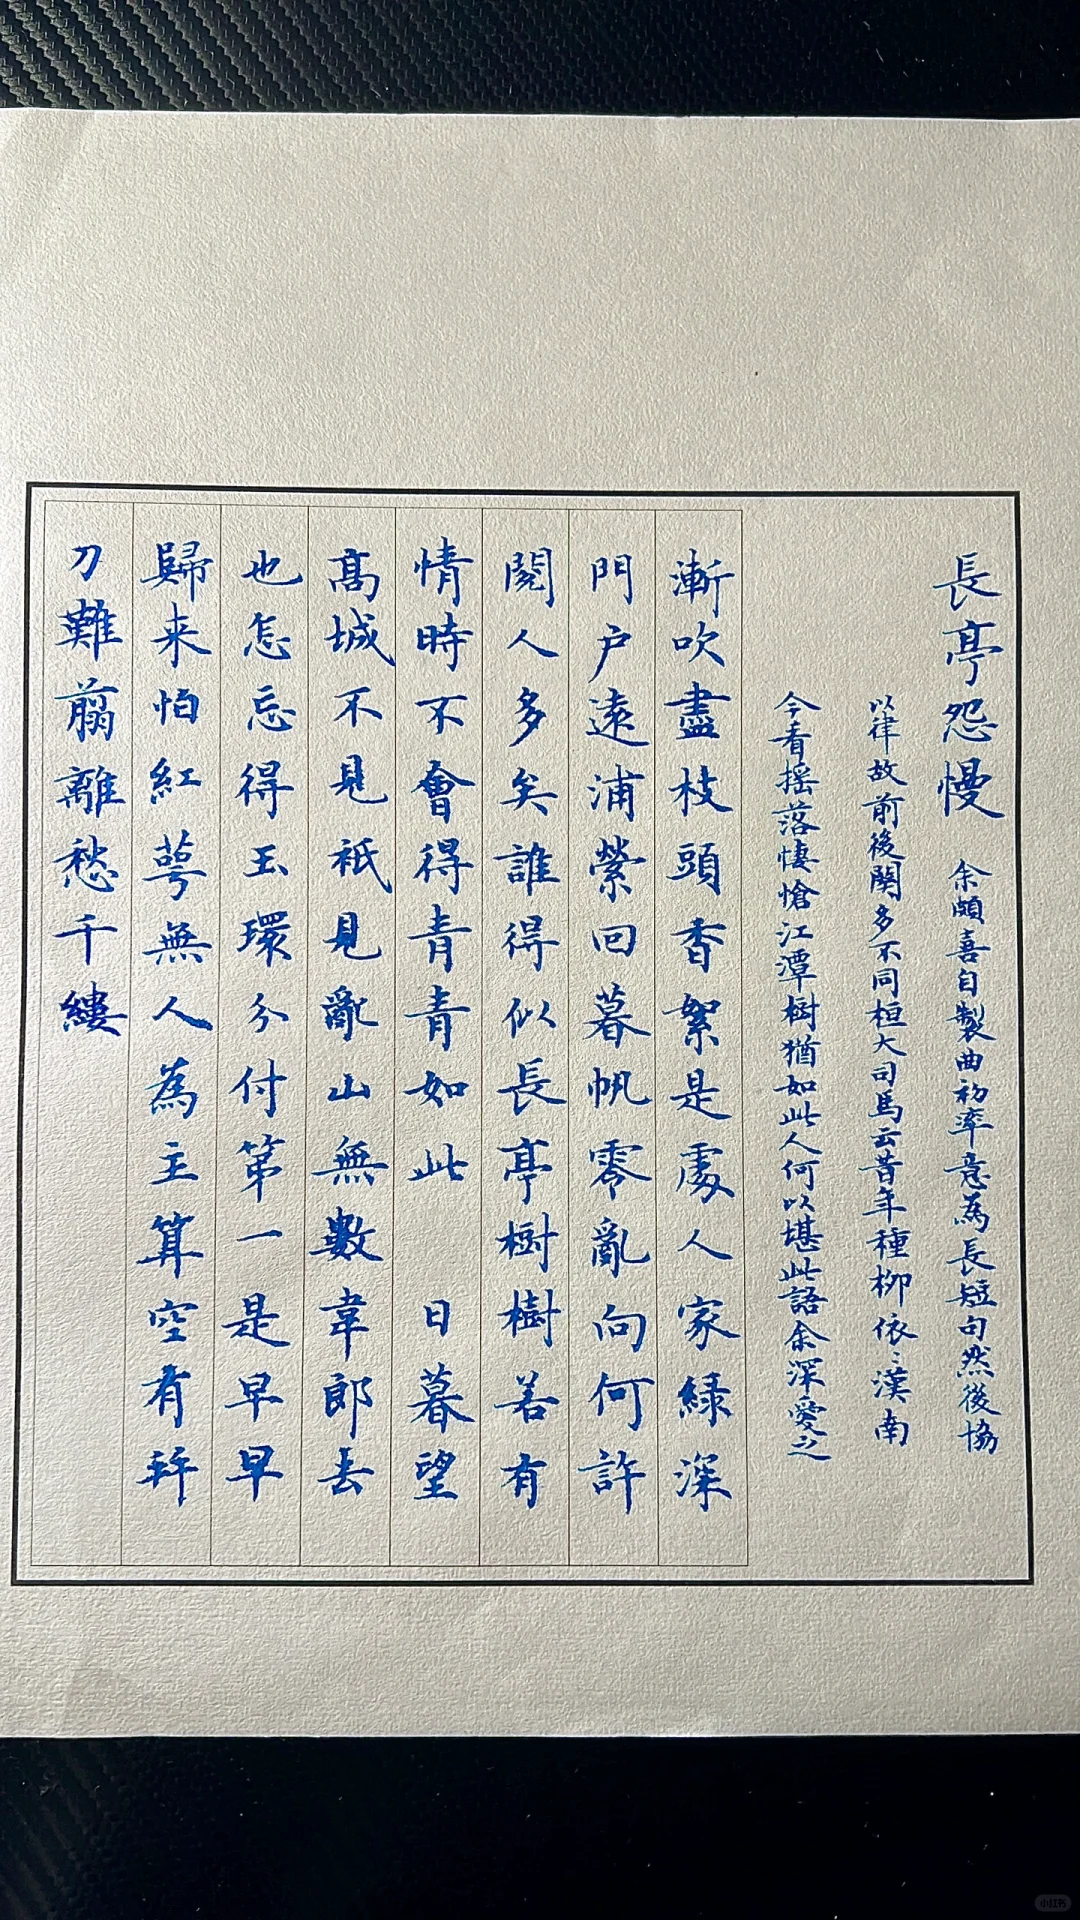 長亭怨慢 余頗喜自製曲初率意為長短句然後協
以律故前後闋多不同桓大司馬云昔年種柳依〻漢南
今看搖落悽愴江潭樹猶如此人何以堪此語余深愛之
漸吹盡枝頭香絮是處人家綠深
門戶遠浦縈回暮帆零亂向何許
閱人多矣誰得似長亭樹樹若有
情時不會得青青如此 日暮望
高城不見衹見亂山無數韋郎去
也怎忘得玉環分付第一是早早
歸来怕紅萼無人為主算空有并
刀難翦離愁千縷
小红书